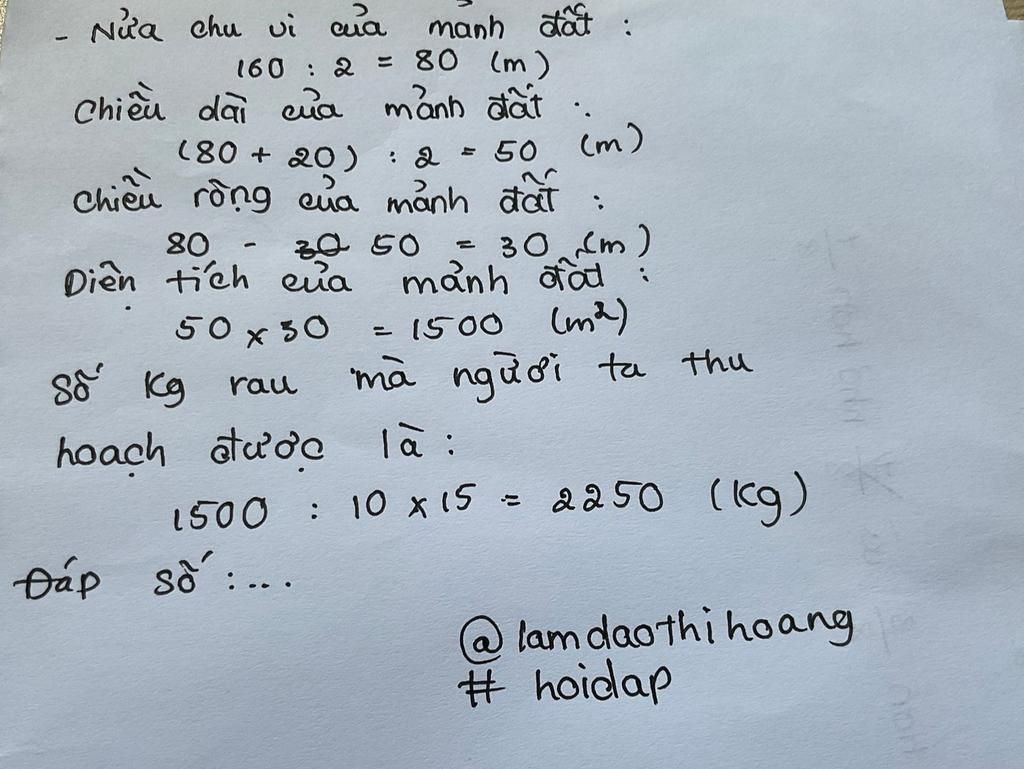 - Nửa chu vi của mảnh đất :
160 : 2 = 80 (m)
Chiều dài của mảnh đất :
(80 + 20) : 2 = 50 (m)
Chiều rộng của mảnh đất :
80 - 30 50 = 30 (m)
Diện tích của mảnh đất :
50 x 30 = 1500 (m²)
Số Kg rau mà người ta thu
hoạch được là :
1500 : 10 x 15 = 2250 (Kg)
Đáp số : ...
@lamdaothihoang
# hoidap